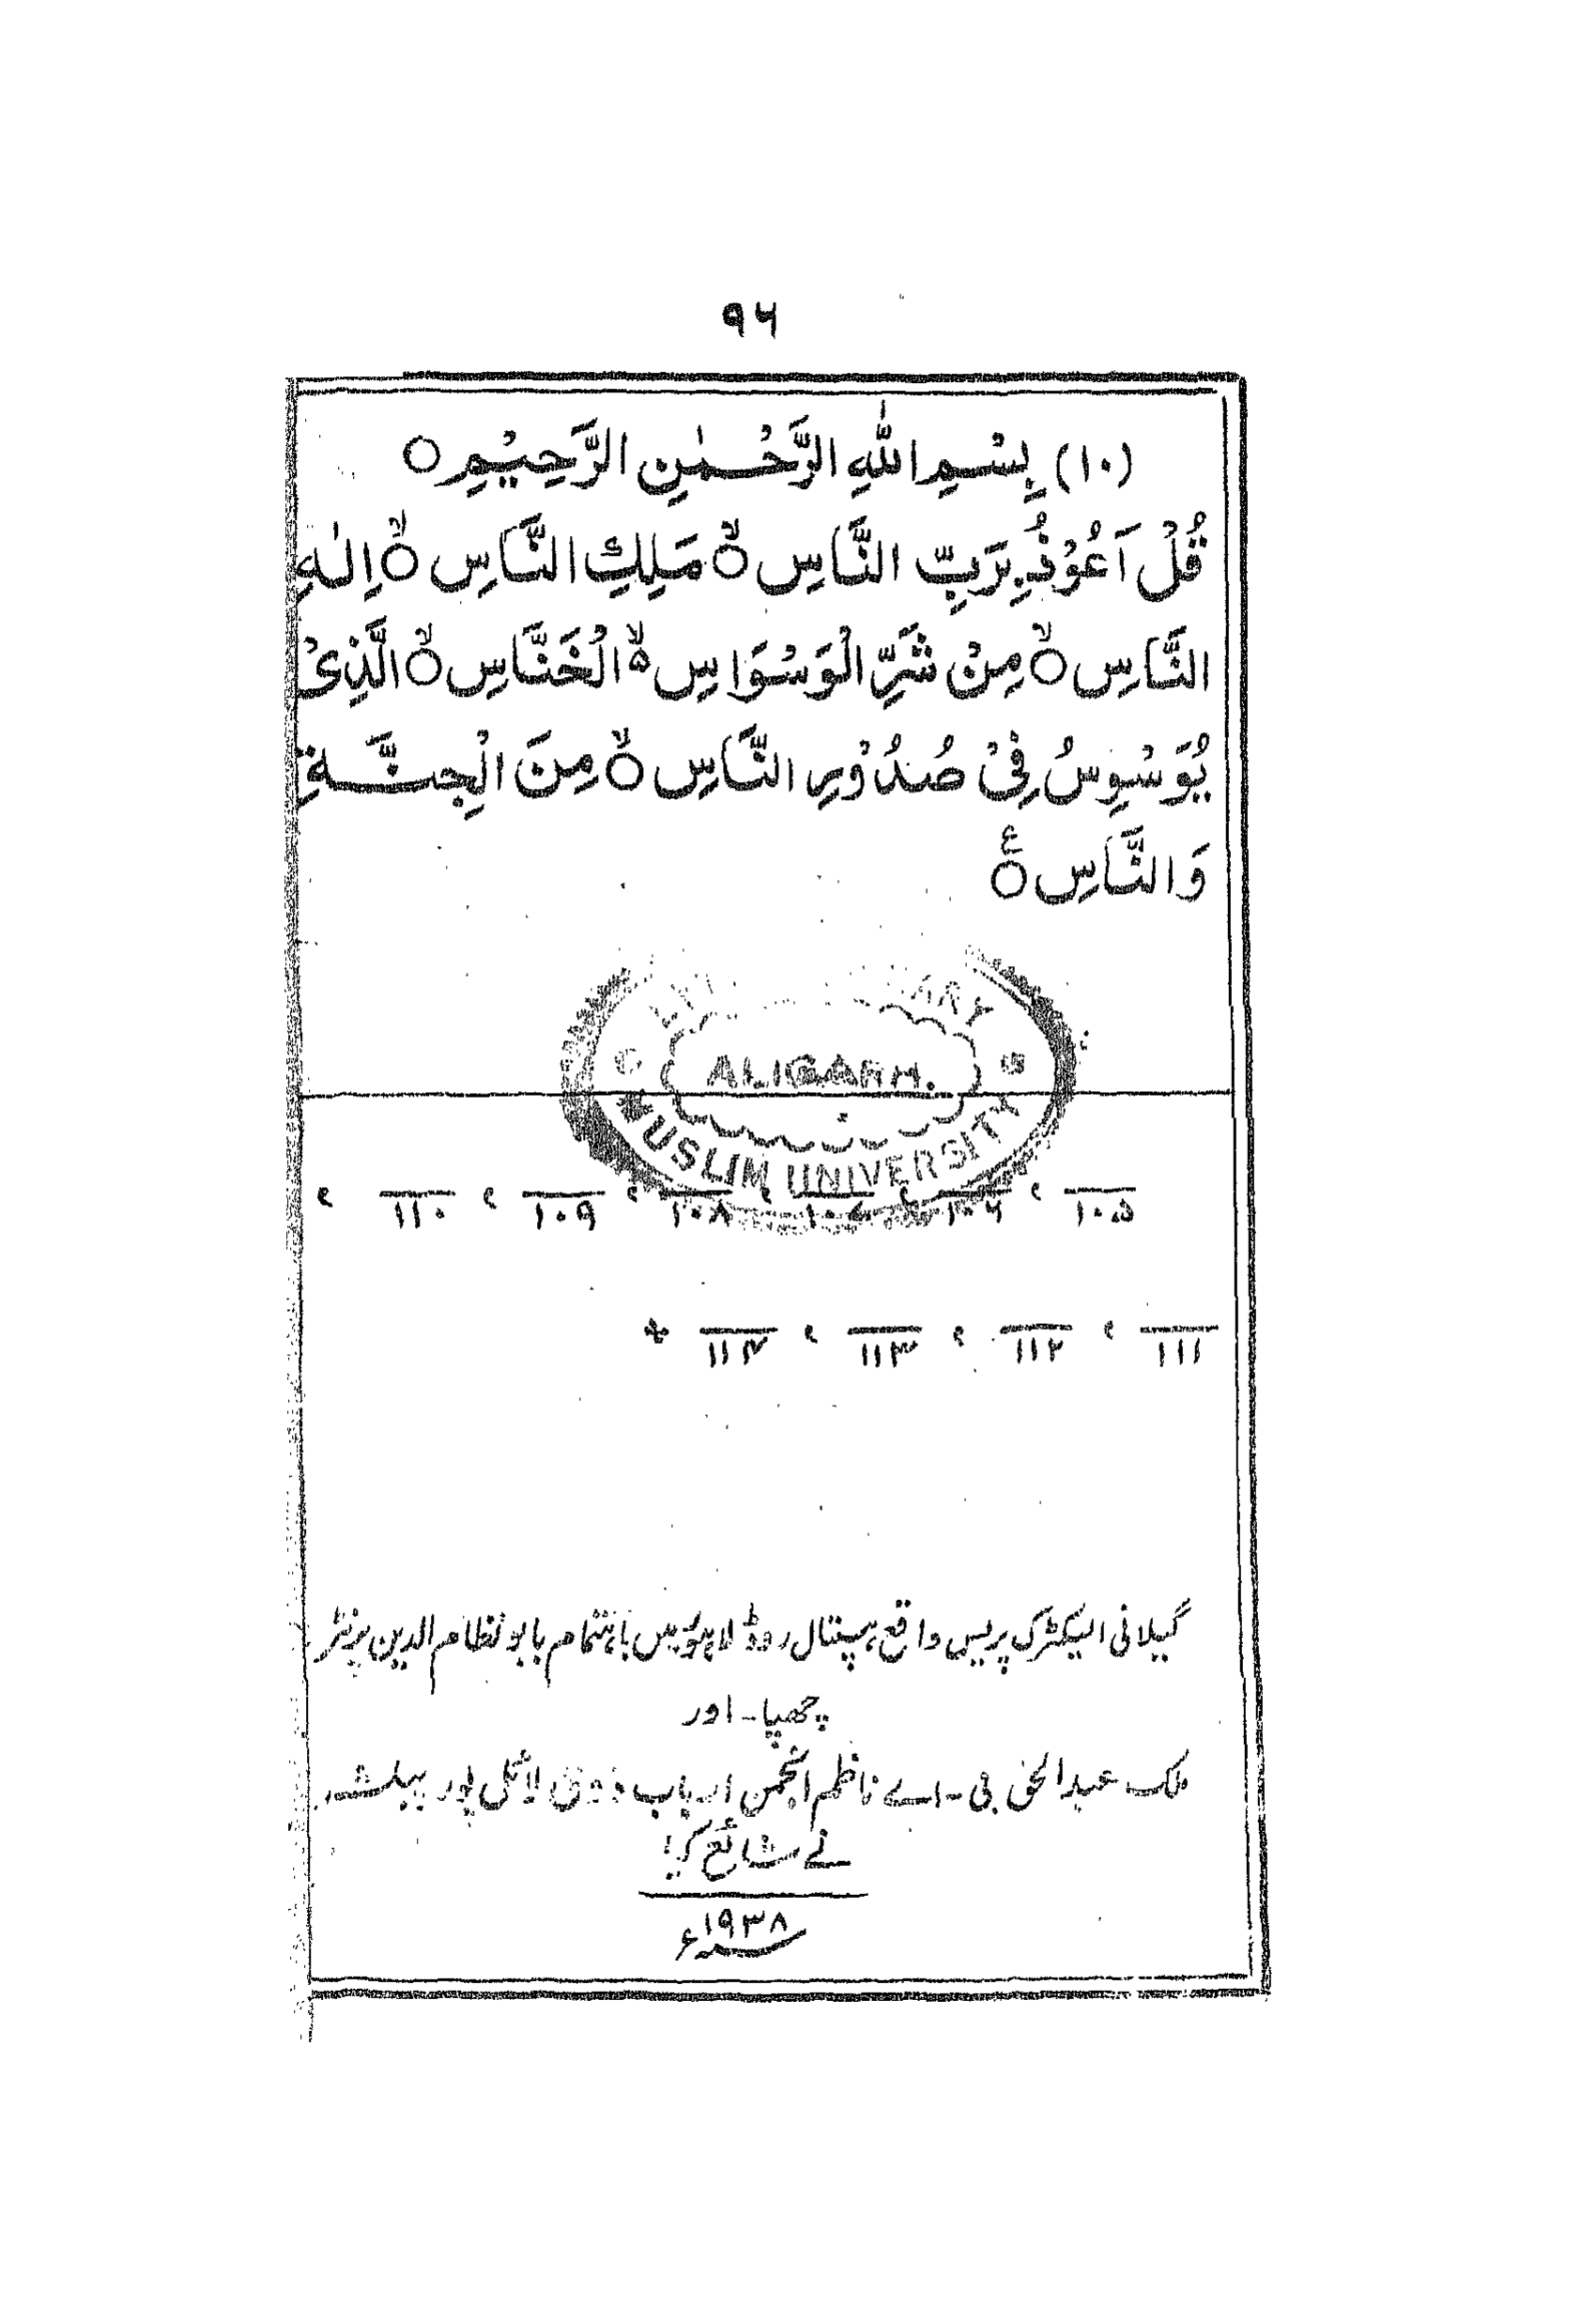 ۹۶
(۱۰) بِسْمِ اللّٰهِ الرَّحْمٰنِ الرَّحِيْمِ ○
قُلْ اَعُوْذُ بِرَبِّ النَّاسِ ○ۙ مَلِكِ النَّاسِ ○ۙ اِلٰهِ
النَّاسِ ○ۙ مِنْ شَرِّ الْوَسْوَاسِ ۵ۙ الْخَنَّاسِ ○ۙ الَّذِیْ
يُوَسْوِسُ فِیْ صُدُوْرِ النَّاسِ ○ۙ مِنَ الْجِنَّةِ
وَالنَّاسِ ○ع
ALIGARH.
MUSLIM UNIVERSITY
۱۰۵ ، ۱۰۶ ، ۱۰۷ ، ۱۰۸ ، ۱۰۹ ، ۱۱۰ ،
۱۱۱ ، ۱۱۲ ، ۱۱۳ ، ۱۱۴ *
گیلانی الیکٹرک پریس واقع ہسپتال روڈ لاہور میں باہتمام بابو نظام الدین پرنٹر
چھپا۔ اور
ملک عبدالحق بی۔اے ناظم انجمن ارباب ذوق لائل پور پبلشر
نے شائع کیا
۱۹۳۸ء